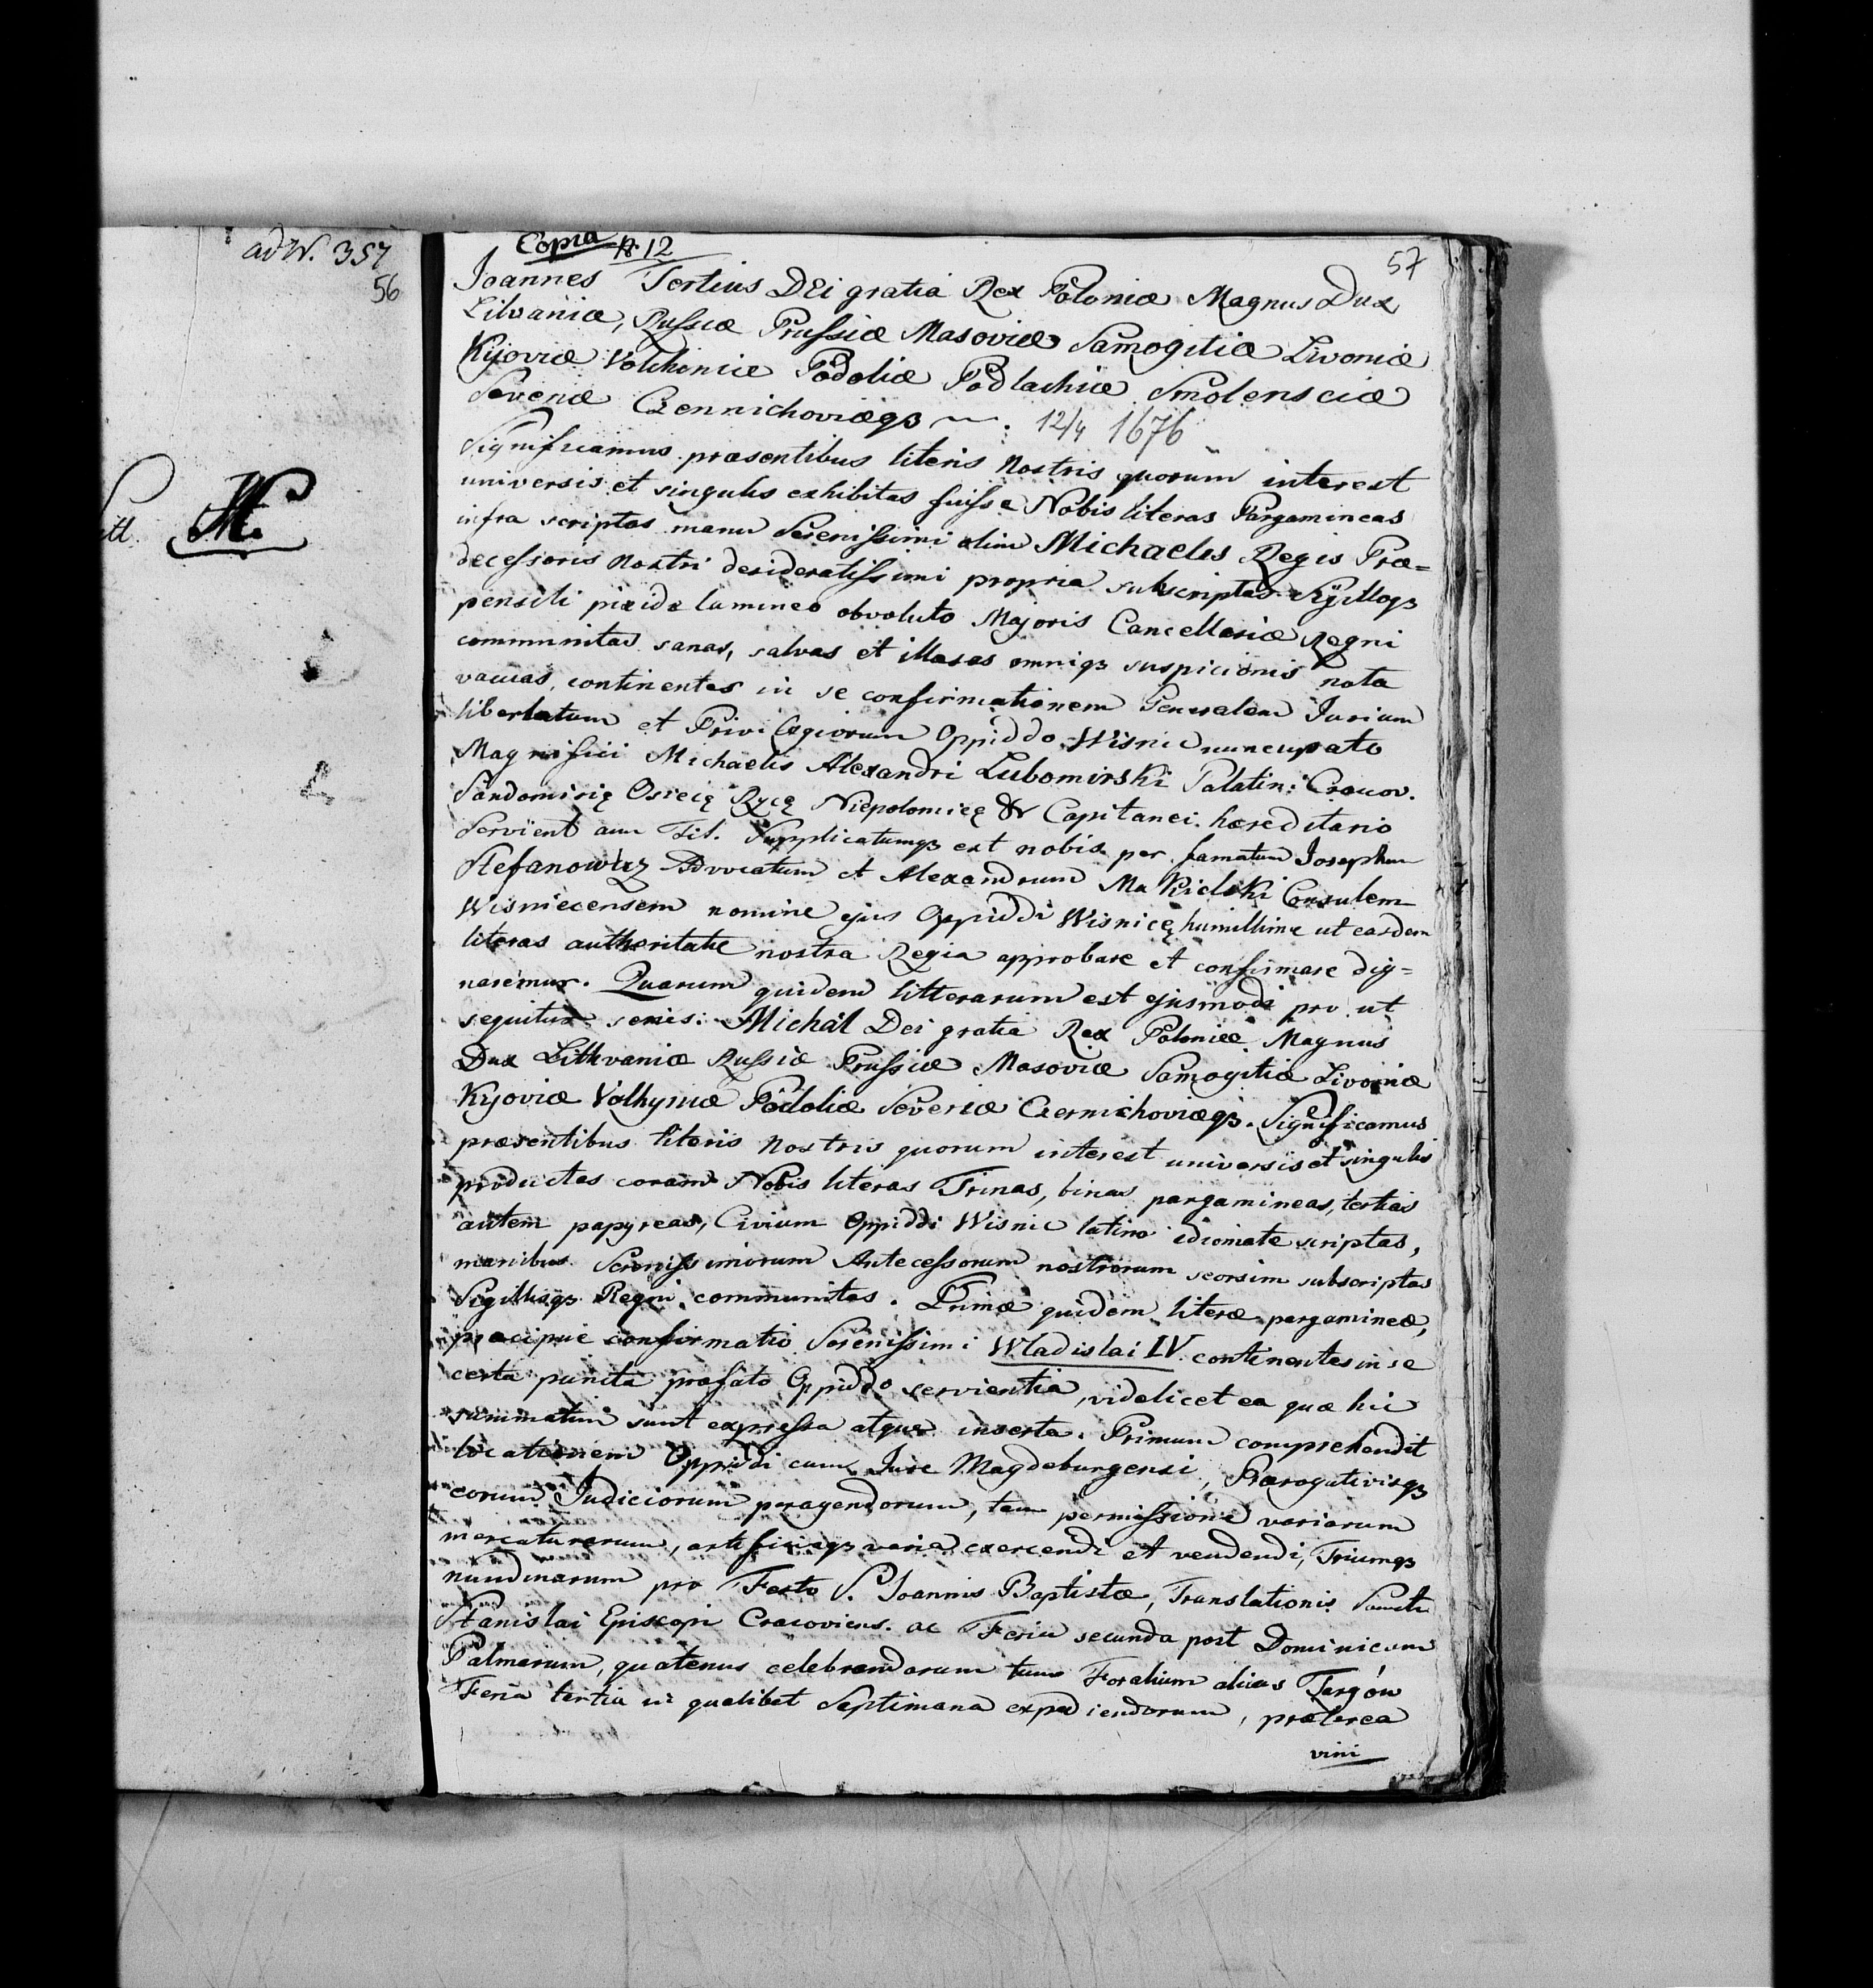 ad N. 357
56
Copia № 12
57
Joannes Tertius DEi gratia Rex Poloniæ Magnus Dux
Litvaniæ, Russiæ Prussiæ Masoviæ Samogitiæ Livoniæ
Kijoviæ Volchiniæ Podoliæ Podlachiæ Smolensciæ
Severiæ Czennichoviæqȝ 12/4 1676
Significamus præsentibus literis nostris quorum interest
universis et singulis exhibitas fuisse Nobis literas Pargamineas
infra scriptas manu Serenissimi olim Michaelis Regis Præ=
decessoris nostri desideratissimi propria subscriptas Sigilloqȝ
pensili pixide laminea obvoluto Majoris Cancellariæ Regni
communitas sanas, salvas et illæsas omniqȝ suspicionis nota
vacuas, continentes in se confirmationem Generalem Jurium
libertatum et Privilegiorum Oppiddo Wisnic nuncupato
Magnifici Michaelis Alexandri Lubomirski Palatin: Cracov.
Sandomirię Osiecię Rycę Niepolomicę & Capitanei hæreditario
Servient aum Tit. Supplicatumqȝ est nobis per famatum Josephum
Stefanowicz Advocatum et Alexandrum Makielski Consulem
Wisniecensem nomine ejus Oppiddi Wisnicę humillime ut easdem
literas autheritate nostra Regia approbare et confirmare dig=
naremur. Quarum quidem litterarum est ejusmodi pro ut
sequitur series: Michäl Dei gratia Rex Poloniæ Magnus
Dux Lithvaniæ Russiæ Prussiæ Masoviæ Samogitiæ Livoniæ
Kyoviæ Volhyniæ Podoliæ Severiæ Czernichoviæqȝ. Significamus
præsentibus literis nostris quorum interest universis et singulis
productas coram Nobis literas Trinas, binas pargamineas, tertias
autem papyreas, Civium Oppiddi Wisnic latino idiomate scriptas,
manibus Serenissimorum Antecessorum nostrorum seorsim subscriptas
Sigillisqȝ Regni communitas. Primæ quidem literæ pergamineæ,
præcipuè confirmatio Serenissimi Wladislai IV. continentes in se
certa puncta præfato Oppiddo servientia, videlicet ea quæ hic
summatim sunt expressa atque inserta. Primum comprehendit
locationem Oppiddi cum Jure Magdeburgensi, Prærogativisqȝ
eorum Judiciorum peragendorum, tam permissione variarum
mercaturarum, artificiiqȝ varia exercendi et vendendi, Triumqȝ
nundinarum pro Festo S. Joannis Baptistæ, Translationis Sancti
Stanislai Episcopi Cracoviens. ac Feria secunda post Dominicam
Palmarum, quatenus celebrandarum tum Foralium alias Targów
Feria tertia in qualibet Septimana expediendorum, præterea
vini